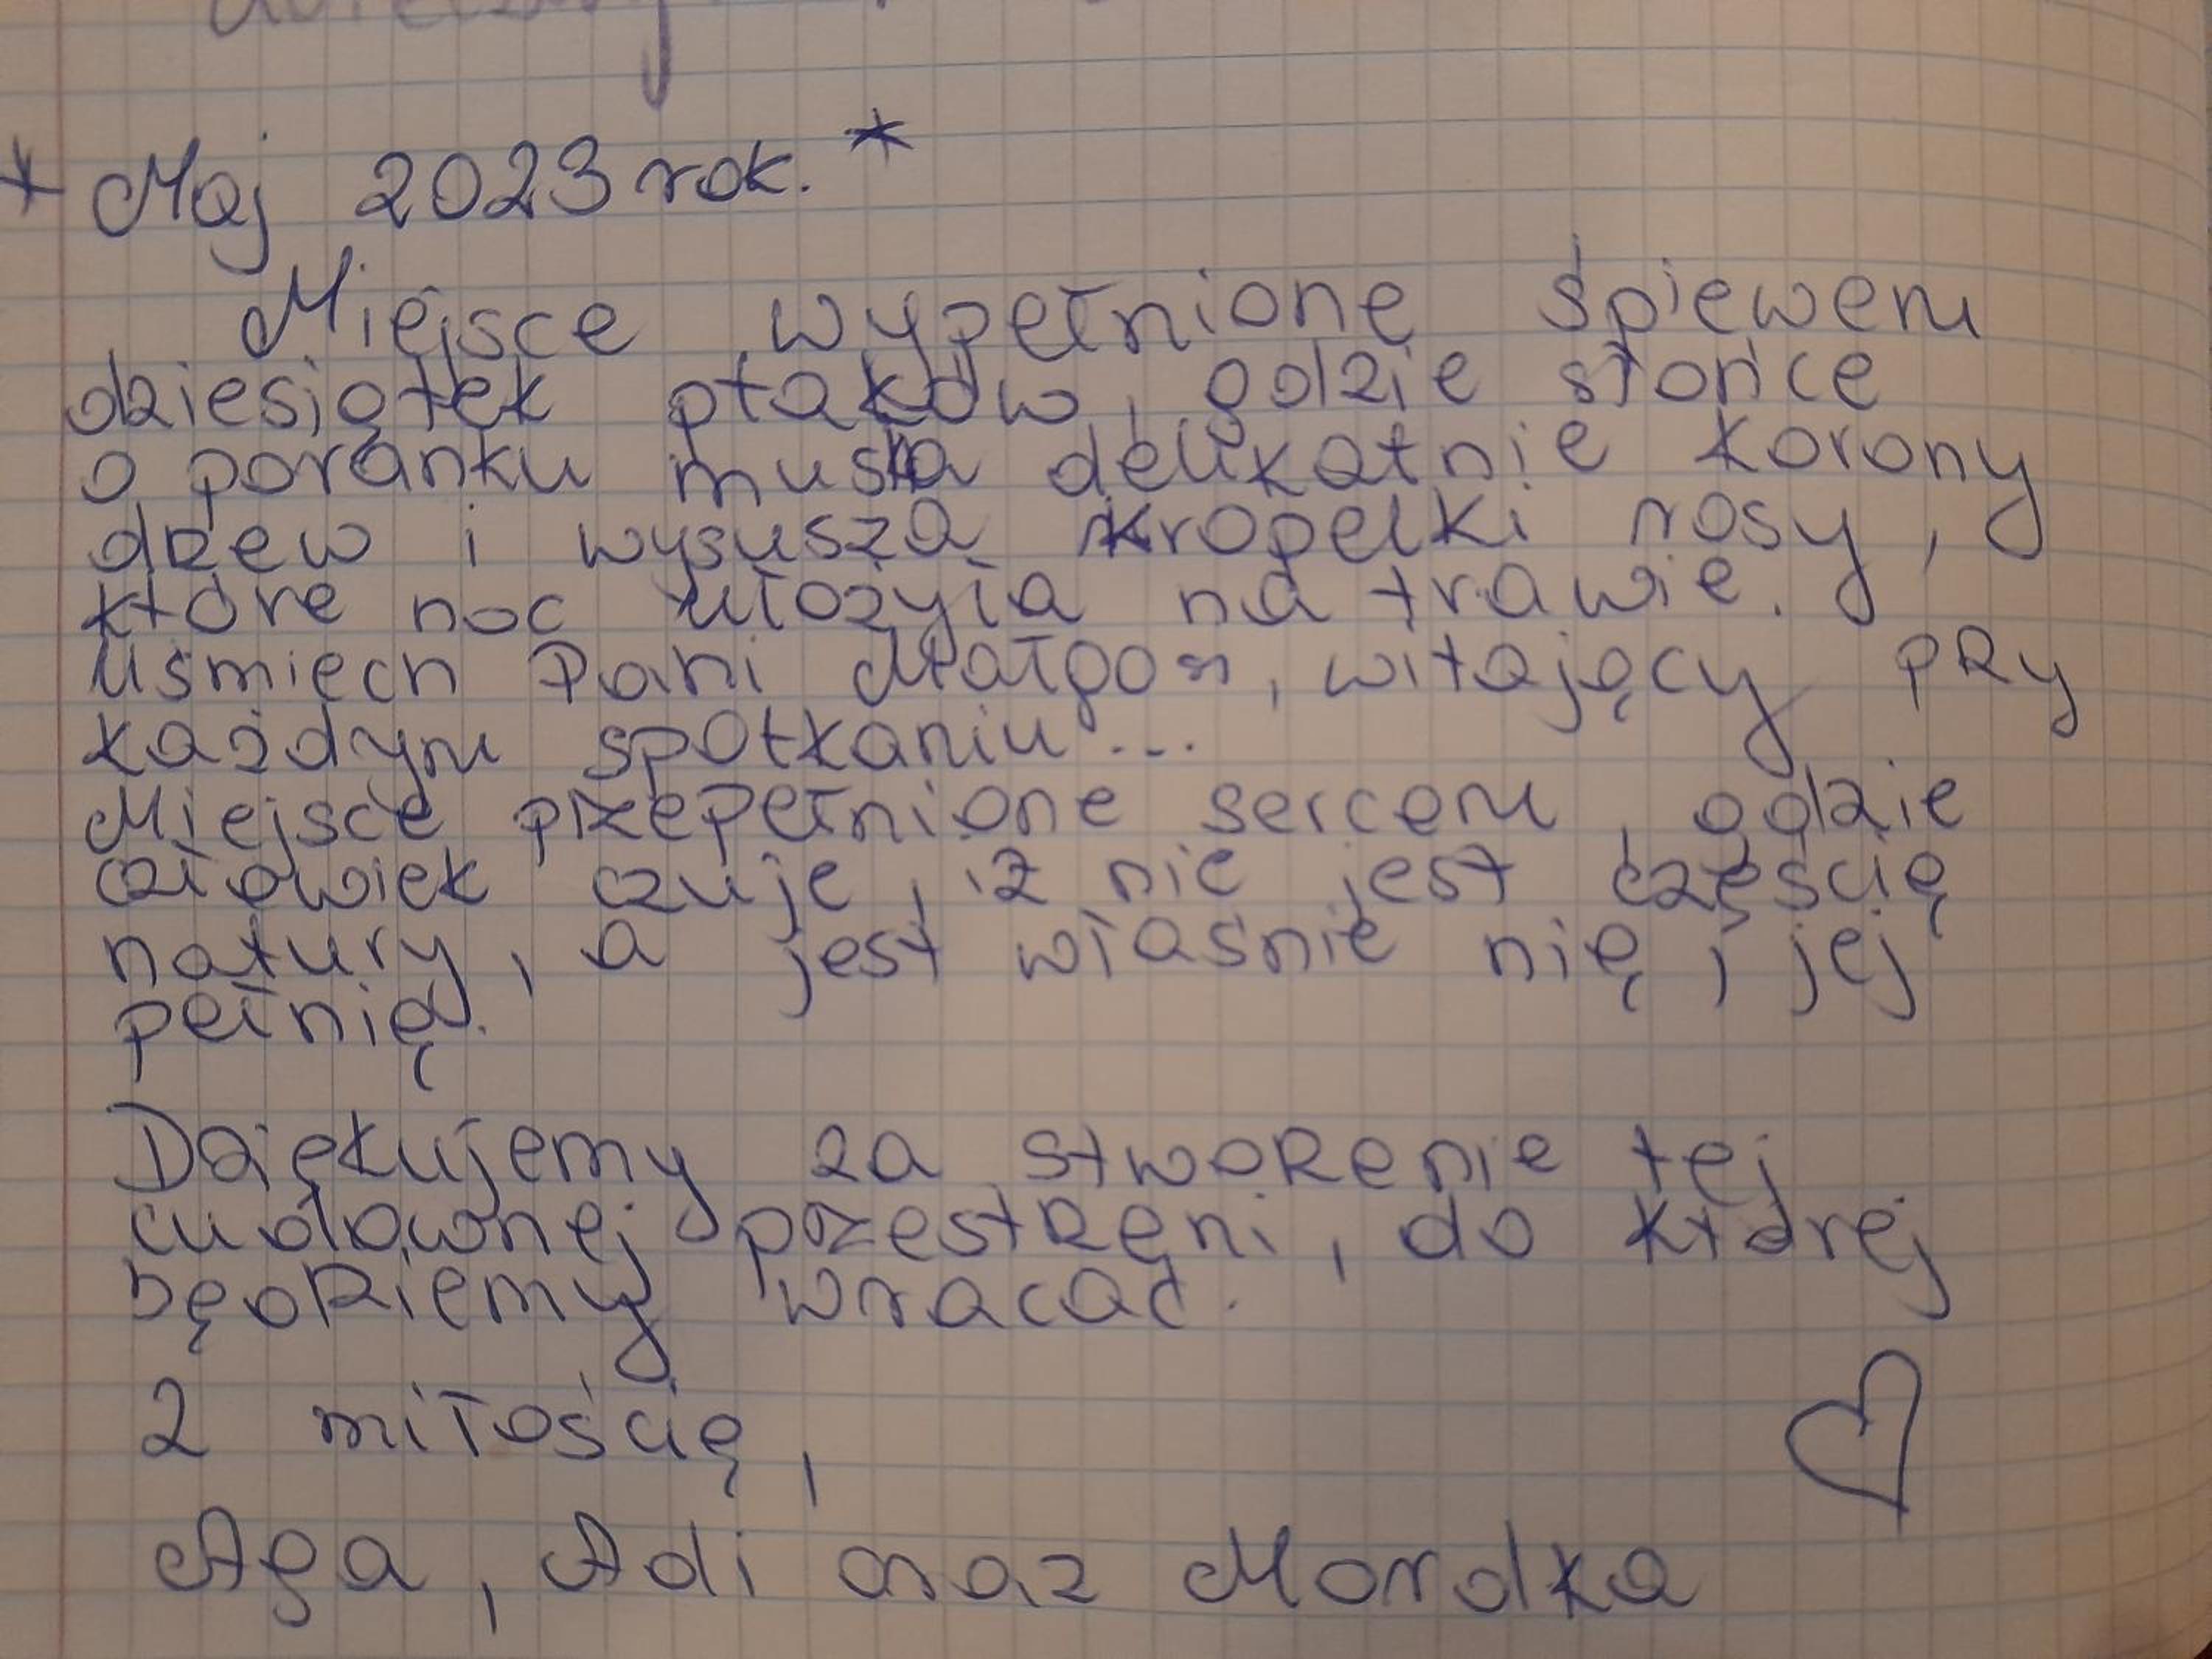 * Maj 2023 rok. *
Miejsce wypełnione śpiewem
dziesiątek ptaków, gdzie słońce
o poranku muska delikatnie korony
drzew i wysusza kropelki rosy,
które noc ułożyła na trawie.
Uśmiech Pani Małgosi, witający przy
każdym spotkaniu...
Miejsce przepełnione sercem, gdzie
człowiek czuje, iż nie jest częścią
natury, a jest właśnie nią i jej
pełnią.
Dziękujemy za stworzenie tej
cudownej przestrzeni, do której
będziemy wracać.
Z miłością,
Aga, Adi oraz Mordka